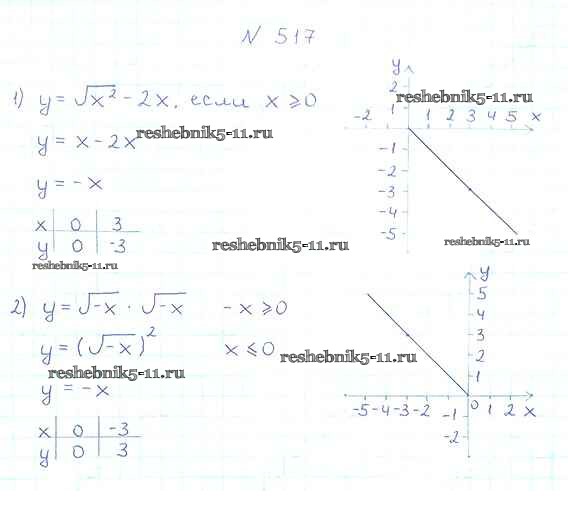 N 517
1) y = √x² - 2x, если x ≥ 0
y = x - 2x
y = -x
x | 0 | 3
y | 0 | -3
reshebnik5-11.ru
reshebnik5-11.ru
reshebnik5-11.ru
y
2
reshebnik5-11.ru
1
-2 1 2 3 4 5 x
-1
-2
-3
-4
-5
reshebnik5-11.ru
2) y = √-x · √-x -x ≥ 0
y = (√-x)² x ≤ 0
reshebnik5-11.ru
reshebnik5-11.ru
y = -x
x | 0 | -3
y | 0 | 3
y
5
4
3
2
1
-5 -4 -3 -2 -1 0 1 2 x
-2